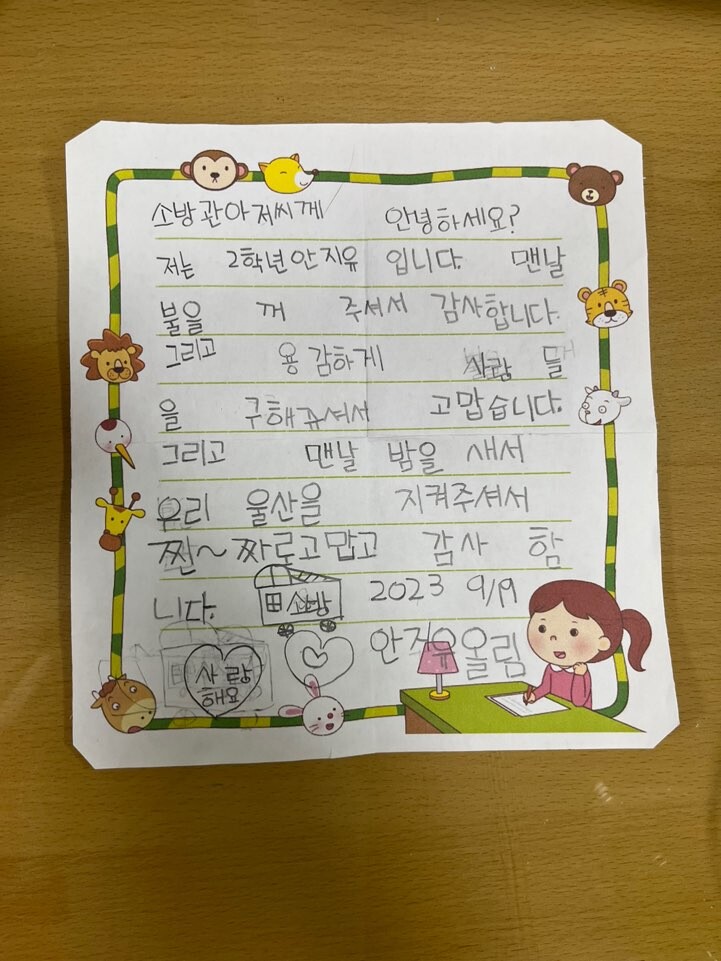 소방관아저씨께 안녕하세요?
저는 2학년안지유 입니다. 맨날
불을 꺼 주셔서 감사합니다.
그리고 용감하게 사람 들
을 구해쥬셔서 고맙습니다.
그리고 맨날 밤을 새서
우리 울산을 지켜주셔서
찐~짜로고맙고 감사 함
니다. 소방 2023 9/19
안지유올림
사랑
해요